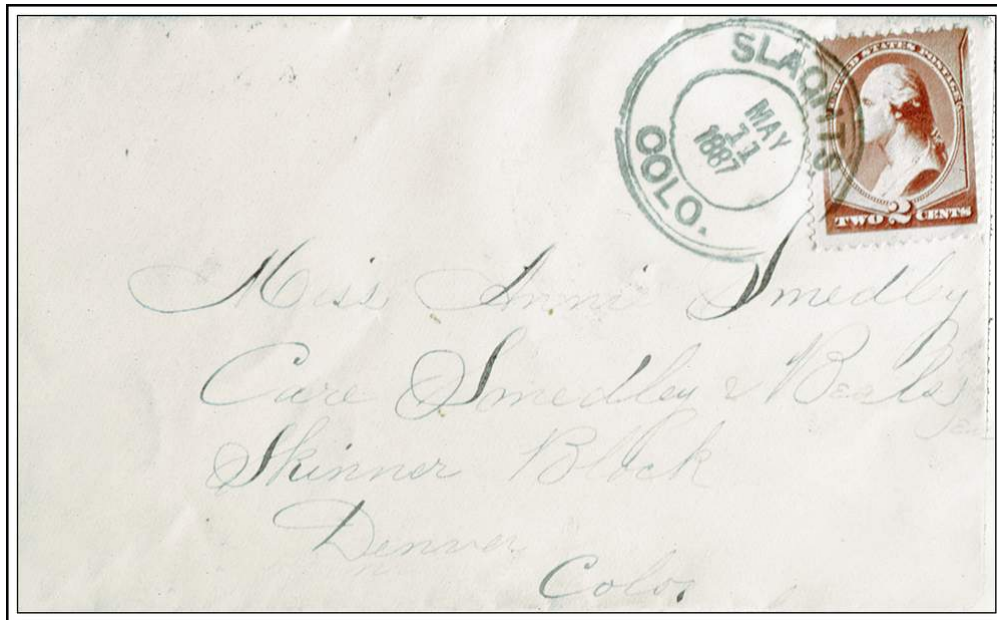 SLAGHTS
COLO.
MAY
11
1887
UNITED STATES POSTAGE
TWO 2 CENTS
Miss Annie Smedley
Care Smedley & Beals
Skinner Block
Denver
Colo.